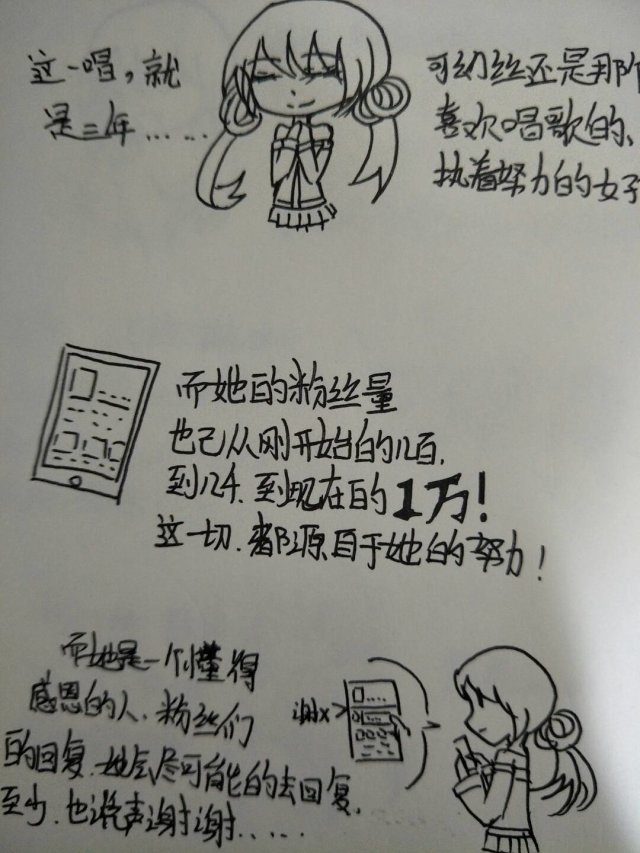 这一唱，就
是三年……
可幻丝还是那个
喜欢唱歌的、
执着努力的女子
而她的粉丝量
也已从刚开始的几百.
到几千.到现在的1万!
这一切.都源自于她的努力!
而她是一个懂得
感恩的人.粉丝们
的回复.她会尽可能的去回复.
至少.也说声谢谢……
谢谢x>